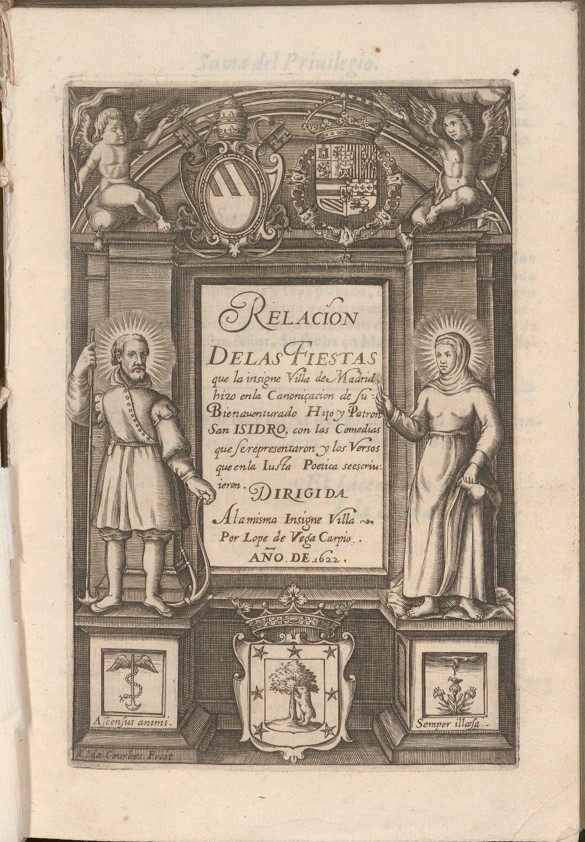 Suma del Priuilegio.
RELACION
DE LAS FIESTAS
que la insigne Villa de Madrid
hizo en la Canoniçacion de su
Bienauenturado Hijo y Patron
San ISIDRO, con las Comedias
que se representaron y los Versos
que en la Iusta Poetica se escriu-
ieron. DIRIGIDA
A la misma Insigne Villa
Por Lope de Vega Carpio.
AÑO DE 1622.
Ascensus animi.
Semper illæsa
de Courbes Fecit